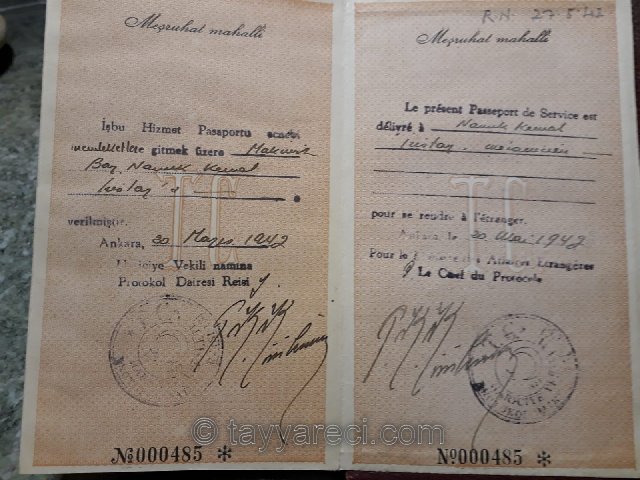 Meşruhat mahalli
İşbu Hizmet Pasaportu ecnebi
memleketlere gitmek üzere Makinist
Bay Namık Kemal
verilmiştir.
Ankara, 30 Mayıs 1942
Hariciye Vekili namına
Protokol Dairesi Reisi
№000485 *
R.N. 27.5.42
Meşruhat mahalli
Le présent Passeport de Service est
délivré à Namık Kemal
mécanicien
pour se rendre à l'étranger.
Ankara, le 30 Mai 1942
Pour le Ministre des Affaires Étrangères
Le Chef du Protocole
№000485 *
TC
TC
© tayyareci.com